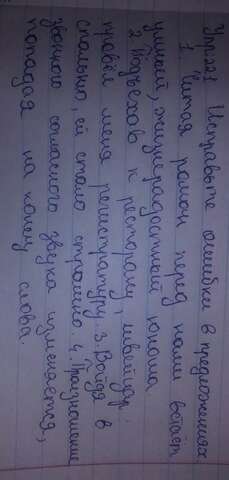 Упр 221 Исправьте ошибки в предложениях.
1. Читая роман перед нами встаёт
умный, жизнерадостный юноша
2. Подъехав к ресторану, швейцар
провёл меня регистратуру. 3. Войдя в
спальню, ей стало страшно. 4. Произношение
звонкого согласного звука изменяется,
попадая на конец слова.